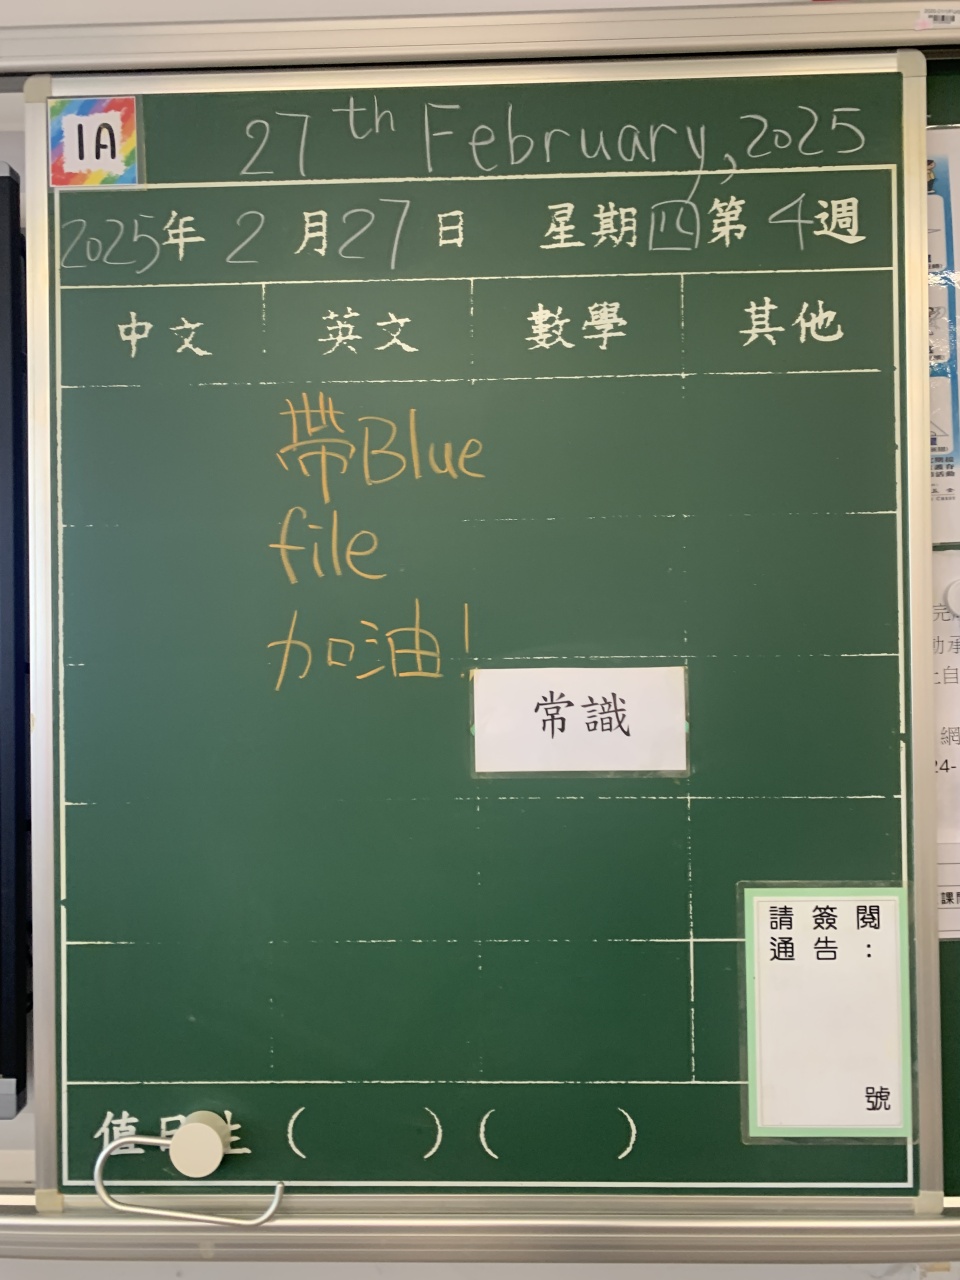 1A
27th February, 2025
2025年2月27日 星期四第4週
中文 英文 數學 其他
帶Blue
file
加油!
常識
請簽閱
通告:
號
值日生 ( ) ( )
完
助承
上自
網
24-
課